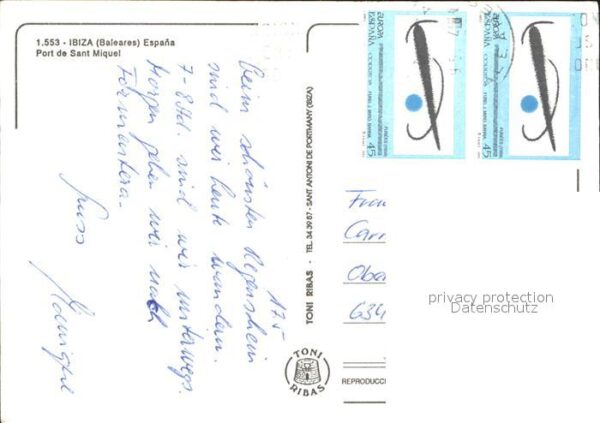 1.553 - IBIZA (Baleares) España
Port de Sant Miquel
17.5
Beim schönsten Regenschein
sind wir heute wandern.
7-8 Std. sind wir unterwegs.
Morgen gehen wir nach
Formentera.
Gruss
TONI RIBAS - TEL. 34 39 87 - SANT ANTONI DE PORTMANY (IBIZA)
TONI
RIBAS
REPRODUCC
ESPAÑA
EUROPA
CORREOS
45
ESPAÑA
EUROPA
CORREOS
45
Frau
Carr
Obe
634
privacy protection
Datenschutz